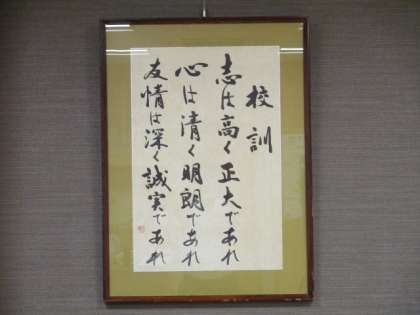 校訓
志は高く正大であれ
心は清く明朗であれ
友情は深く誠実であれ